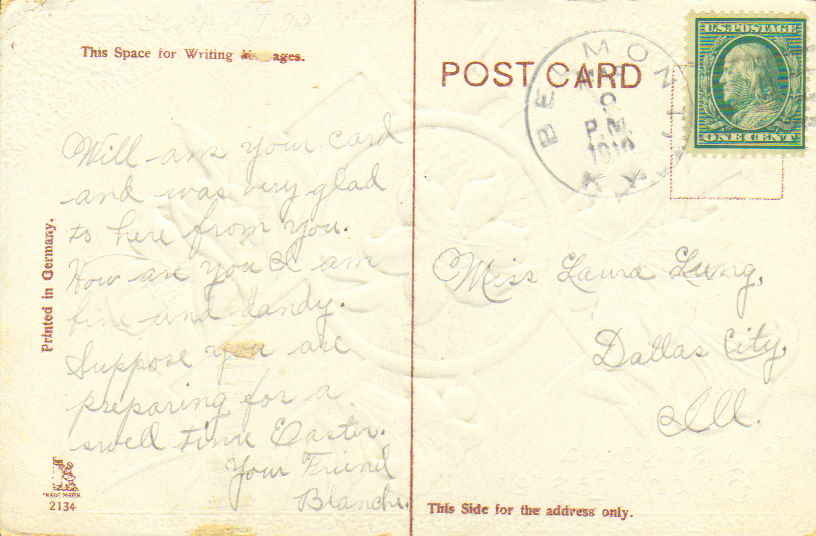 This Space for Writing
Will ans your card
and was very glad
to here from you.
How are you I am
fine and dandy.
Suppose you are
preparing for a
swell time Easter.
Your Friend
Blanche.
Printed in Germany.
TRADE MARK
2134
POST CARD
P.M.
1910
U.S. POSTAGE
ONE CENT
Miss Laura Lung,
Dallas City,
Ill.
This Side for the address only.